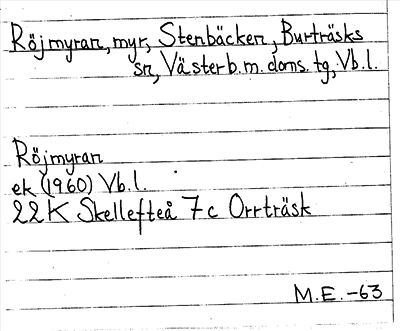 Röjmyran, myr, Stenbäcken, Burträsks
sn, Västerb. m. doms. tg, Vb. l.
Röjmyran
ek (1960) Vb. l.
22K Skellefteå 7c Orrträsk
M.E. -63